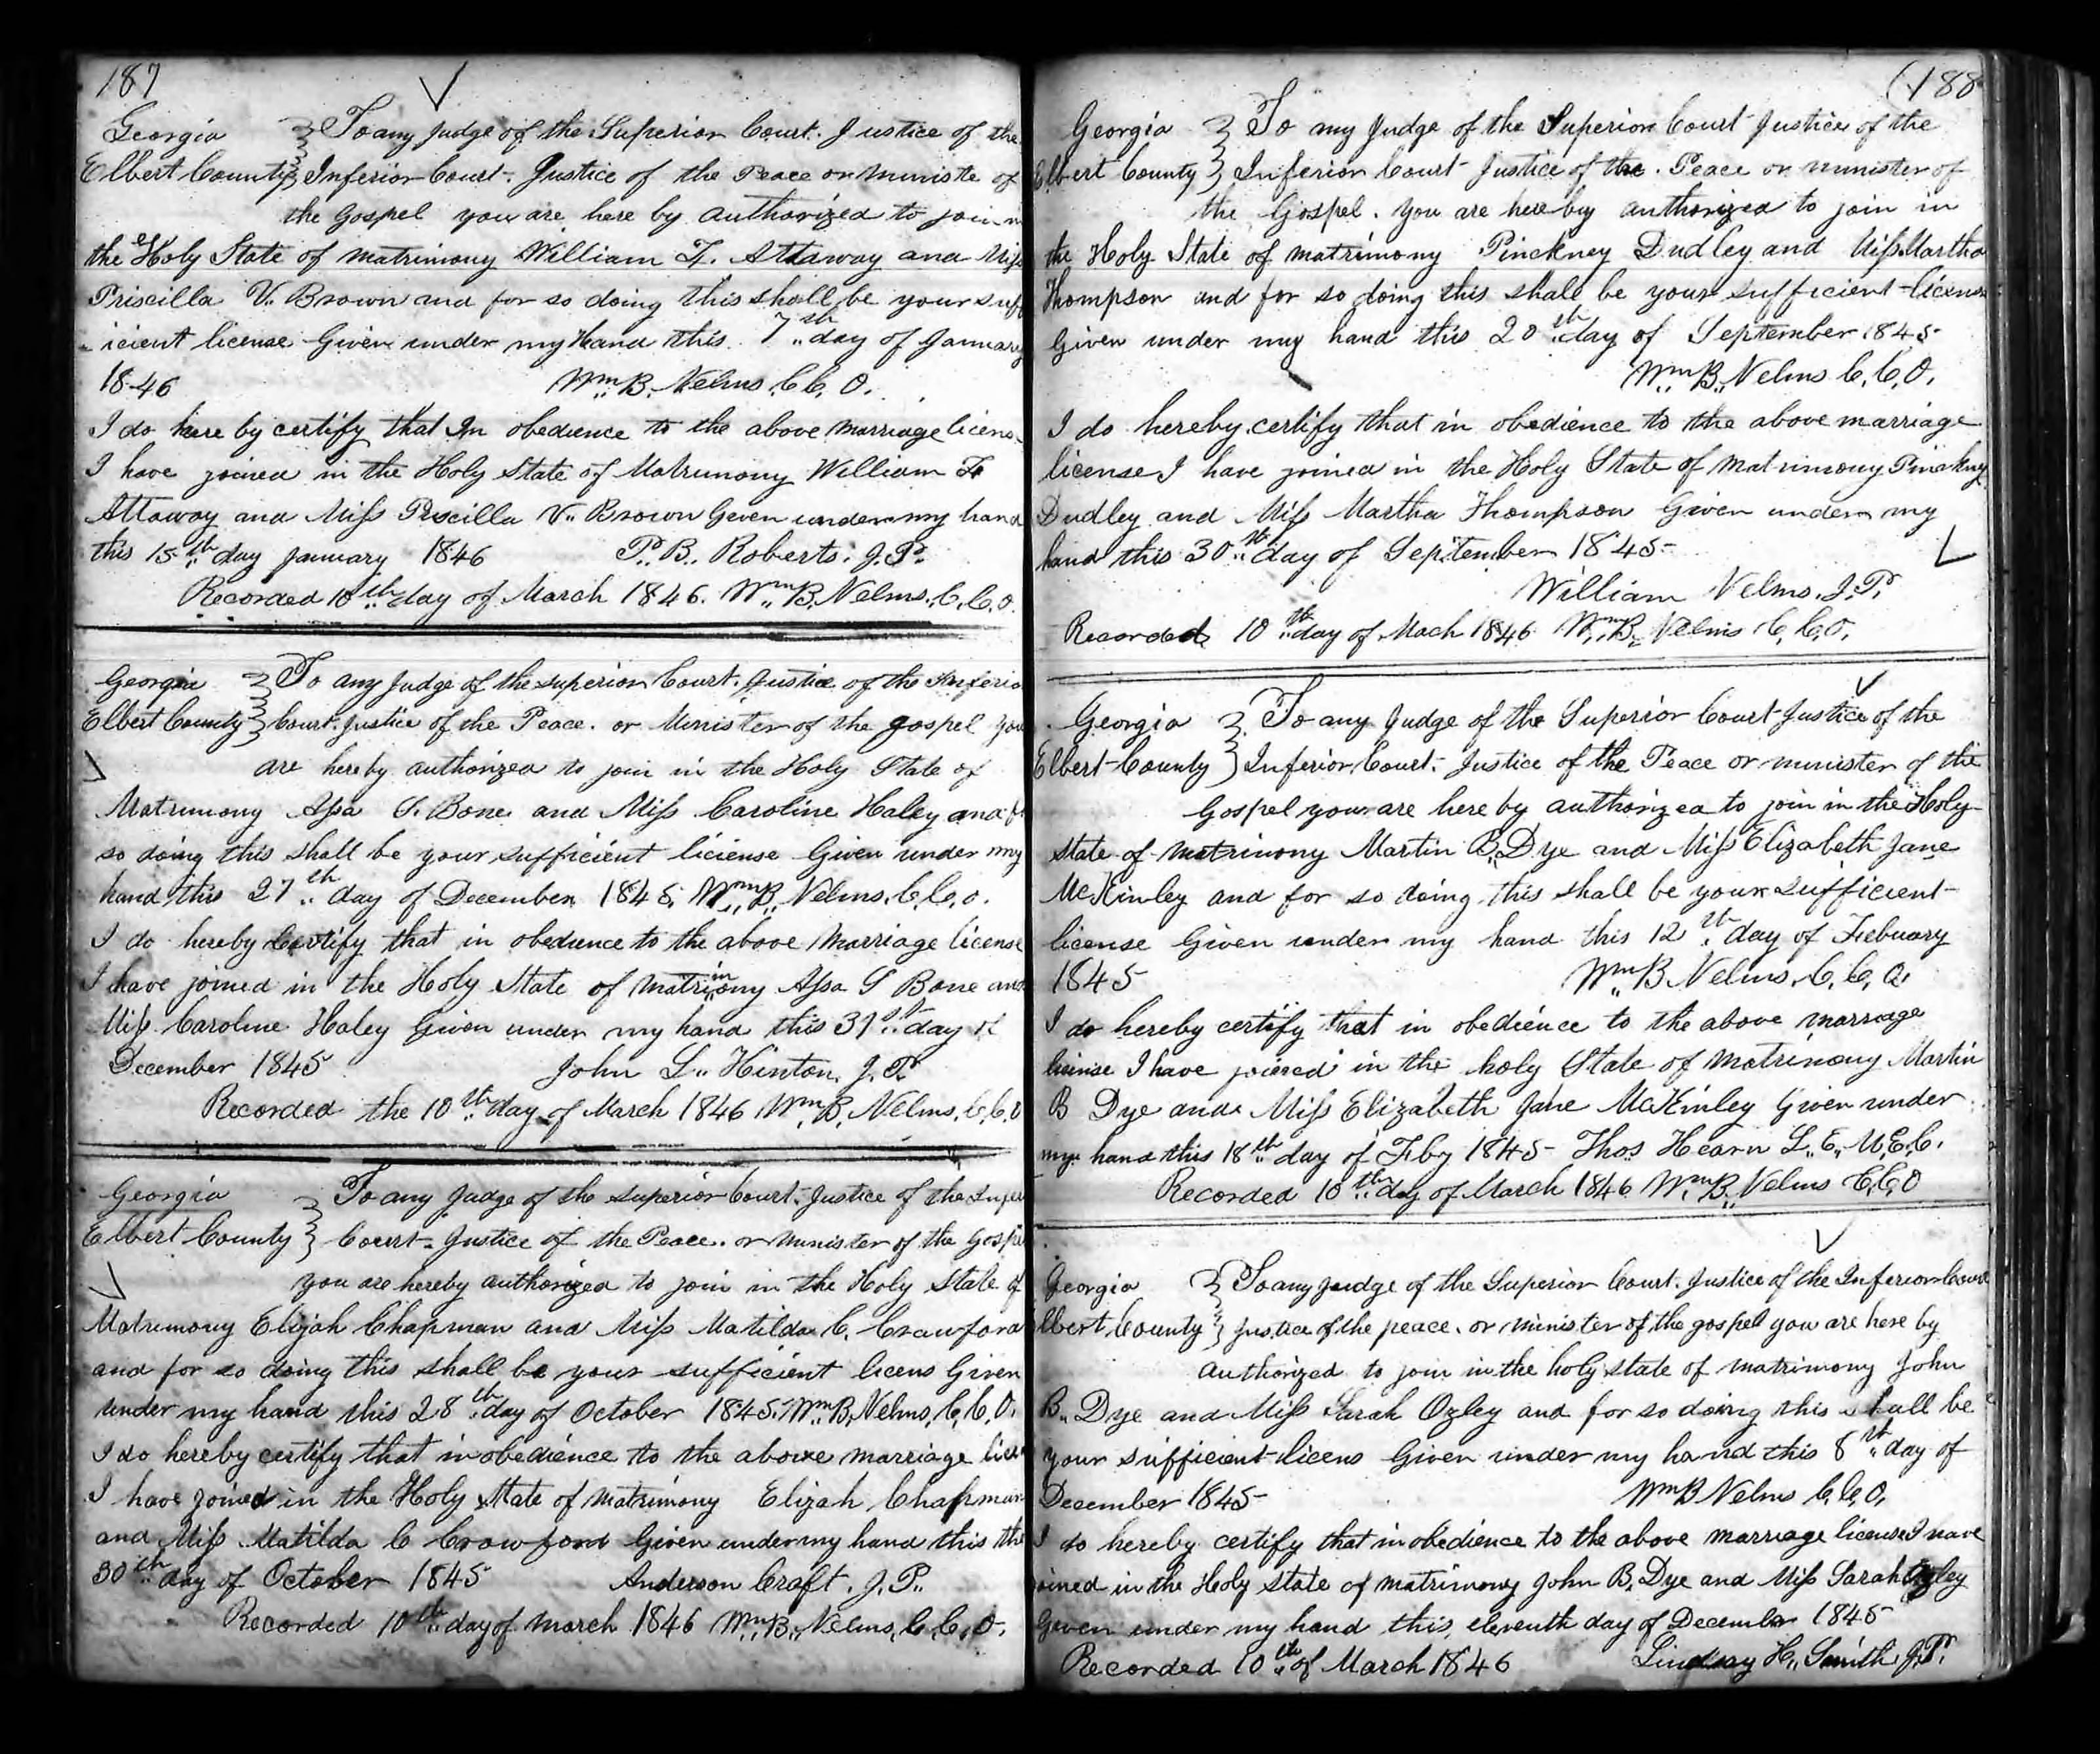 187
Georgia To any Judge of the Superior Court. Justice of the
Elbert County Inferior Court. Justice of the Peace or Ministe of
the Gospel you are here by authorized to join in
the Holy State of matrimony William T. Attaway and Miss
Priscilla V. Brown and for so doing this shall be your suff
icient license Given under my Hand this 7th day of January
1846 Wm. B. Nelms, C. C. O.
I do here by certify that In obedience to the above marriage licens
I have joined in the Holy State of Matrimony William T.
Attaway and Miss Priscilla V. Brown Given under my hand
this 15th day January 1846 P. B. Roberts. J. P.
Recorded 10th day of March 1846. Wm. B. Nelms, C. C. O.
Georgia To any Judge of the superior Court. Justice of the Inferio
Elbert County Court. Justice of the Peace. or Minister of the gospel you
are hereby authorized to join in the Holy State of
Matrimony Assa S. Bone and Miss Caroline Haley and
so doing this shall be your sufficient liciense Given under my
hand this 27th day of December 1845, Wm. B. Nelms. C. C. O.
I do hereby Certify that in obedience to the above Marriage license
I have joined in the Holy State of matrimony Assa S Bone and
Miss Caroline Haley Given under my hand this 31st day of
December 1845 John L. Hinton. J. P.
Recorded the 10th day of March 1846 Wm. B. Nelms, C. C. O
Georgia To any Judge of the superior Court. Justice of the Infer
Elbert County Court. Justice of the Peace. or minister of the Gospe
you are hereby authorized to join in the Holy State of
Matrimony Elijah Chapman and Miss Matilda C. Crawford
and for so doing this shall be your sufficient licens Given
under my hand this 28th day of October 1845. Wm. B. Nelms, C. C. O.
I do hereby certify that in obedience to the above marriage lice
I have joined in the Holy State of matrimony Elizah Chapman
and Miss Matilda C Crawford Given under my hand this the
30th day of October 1845 Anderson Craft. J. P.
Recorded 10th day of March 1846 Wm. B. Nelms, C. C. O.
188
Georgia To any Judge of the Superior Court Justice of the
Elbert County Inferior Court Justice of the. Peace or minister of
the Gospel. you are hereby authorized to join in
the Holy State of matrimony Pinckney Dudley and Miss Martha
Thompson and for so doing this shall be your sufficient license
Given under my hand this 20th day of September 1845
Wm. B. Nelms C. C. O.
I do hereby certify that in obedience to the above marriage
license I have joined in the Holy State of matrimony Pinckney
Dudley and Miss Martha Thompson Given under my
hand this 30th day of September 1845
William Nelms. J. P.
Recorded 10th day of Mach 1846 Wm. B. Nelms C. C. O.
Georgia To any Judge of the Superior Court Justice of the
Elbert County Inferior Court. Justice of the Peace or minister of the
Gospel you are here by authorized to join in the Holy
state of matrimony Martin B. Dye and Miss Elizabeth Jane
McKinley and for so doing this shall be your sufficient
license Given under my hand this 12th day of Febuary
1845 Wm. B Nelms. C. C. O.
I do hereby certify that in obedience to the above marriage
license I have joined in the holy State of Matrimony Martin
B Dye and Miss Elizabeth Jane McKinley Given under
my hand this 18th day of Feby 1845 Thos Hearn L. E. M. E. C.
Recorded 10th day of March 1846 Wm. B. Nelms C. C. O
Georgia To any Judge of the Superior Court. Justice of the Inferior Court
Elbert County Justice of the peace. or minister of the gospel you are here by
authorized to join in the holy state of matrimony John
B. Dye and Miss Sarah Ogley and for so doing this shall be
your sufficient licens Given under my hand this 8th day of
December 1845 Wm B Nelms C. C. O.
I do hereby certify that in obedience to the above marriage license I have
joined in the Holy state of matrimony John B. Dye and Miss Sarah Ogley
Given under my hand this, eleventh day of December 1845
Recorded 10th of March 1846 Lindsay H. Smith. J. P.